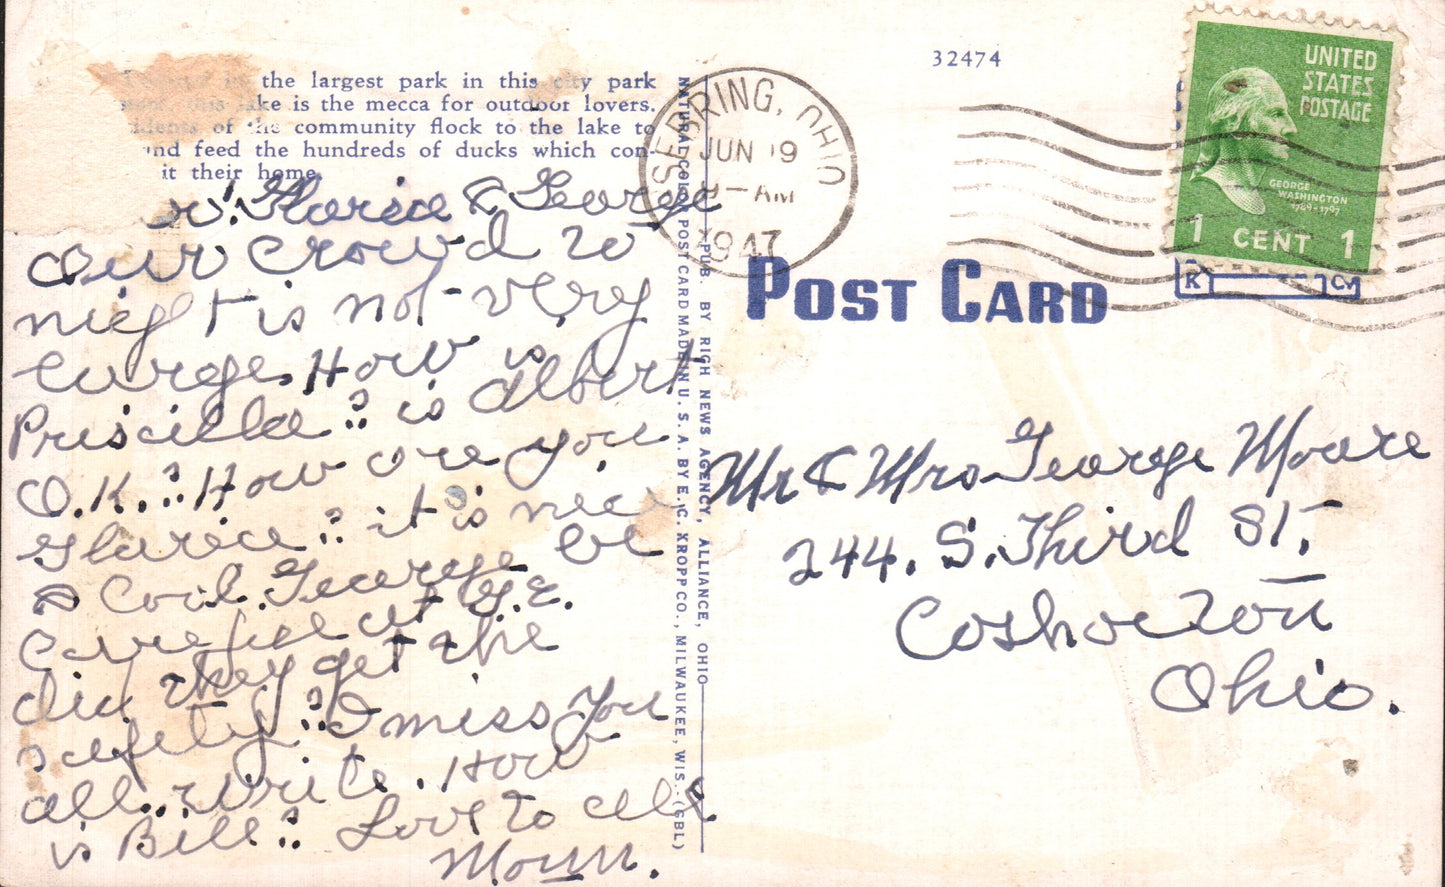 the largest park in this city park
this lake is the mecca for outdoor lovers.
of the community flock to the lake to
and feed the hundreds of ducks which con-
it their home.
Glorica & George
Our crowd to
night is not very
large. How is
Priscilla? is Albert
O.K.? How are you
Glorica? it is nice
& Cool. George be
careful at G.E.
did they get the
safety? I miss you
all. write. How
is Bill? Love to all
Mom.
NATURAL COLOR POST CARD MADE IN U. S. A. BY E. C. KROPP CO., MILWAUKEE, WIS. (GBL)
PUB. BY RIGH NEWS AGENCY, ALLIANCE, OHIO
32474
SEBRING, OHIO
JUN 19
AM
1947
UNITED
STATES
POSTAGE
GEORGE
WASHINGTON
1789-1797
1 CENT 1
POST CARD
Mr & Mrs George Moore
244. S. Third St.
Coshocton
Ohio.